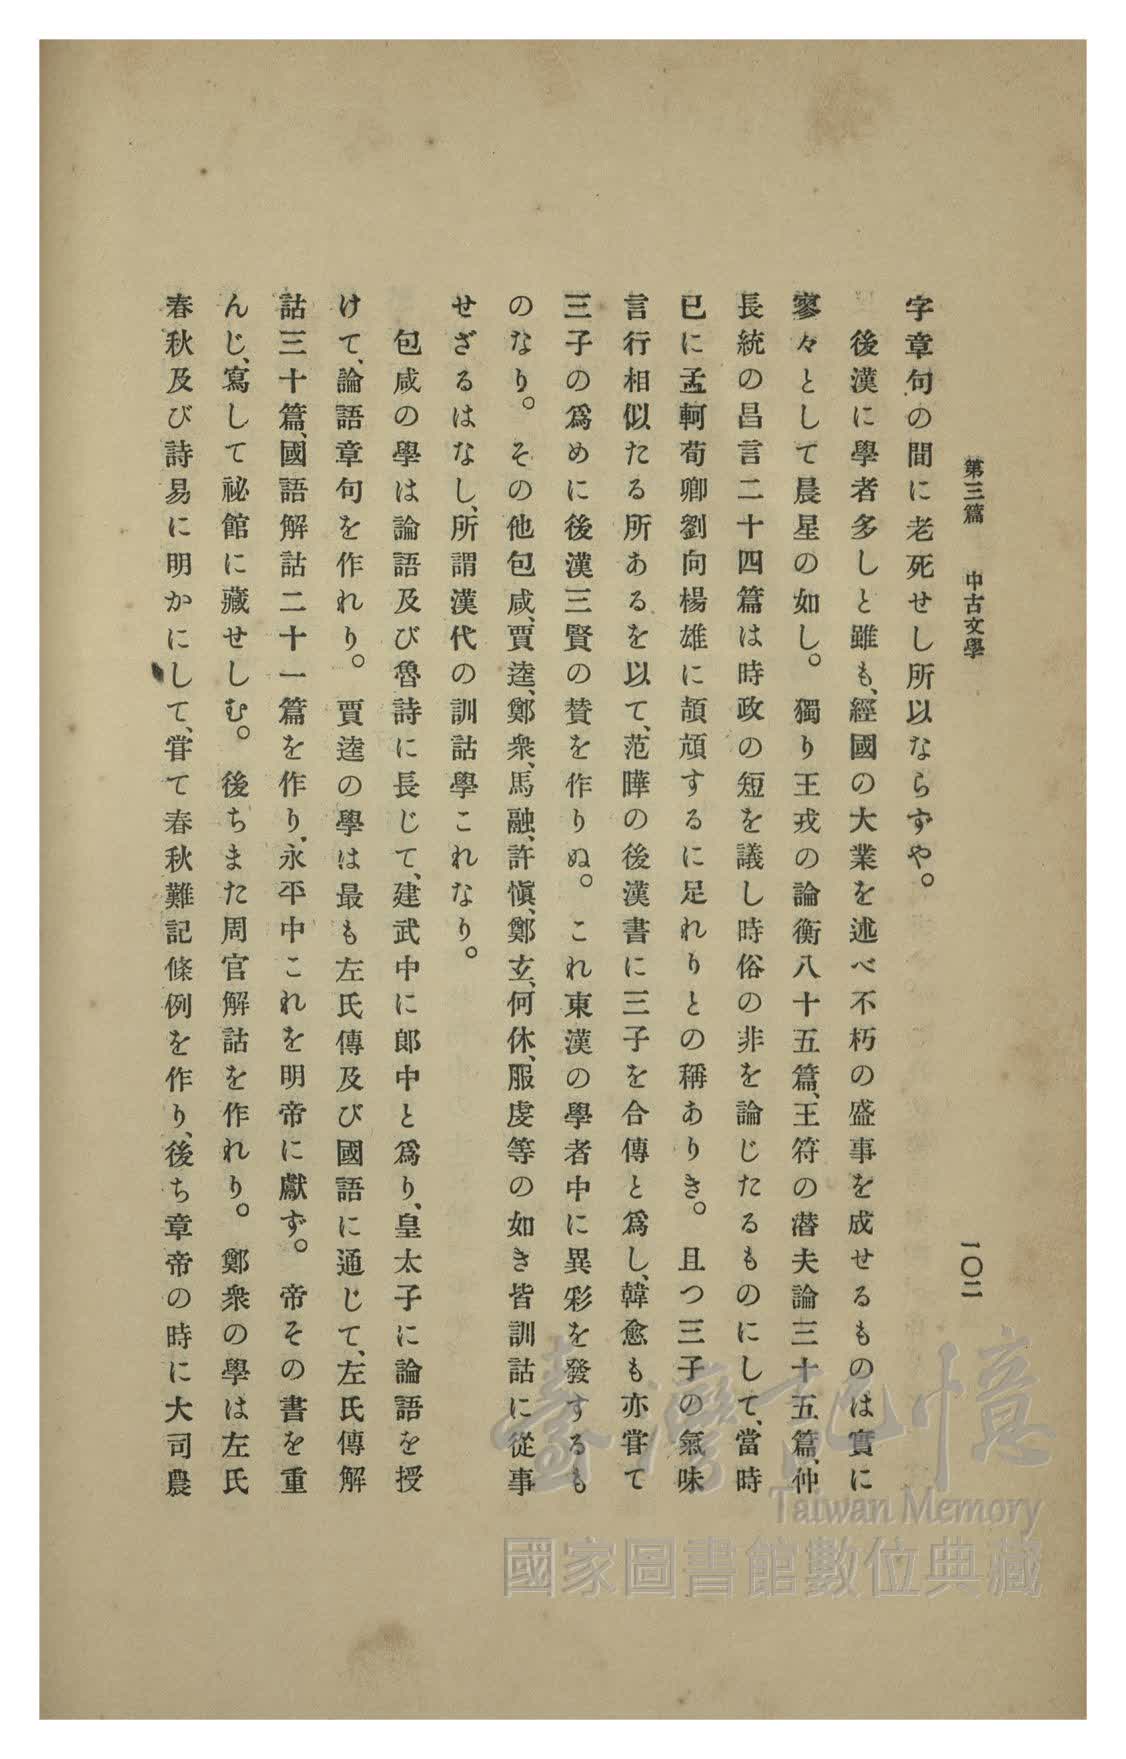 第三篇　中古文學　一〇二
字章句の間に老死せし所以ならずや。
後漢に學者多しと雖も、經國の大業を述べ不朽の盛事を成せるものは實に
寥々として晨星の如し。獨り王戎の論衡八十五篇、王符の潜夫論三十五篇、仲
長統の昌言二十四篇は時政の短を議し時俗の非を論じたるものにして、當時
已に孟軻荀卿劉向楊雄に頡頏するに足れりとの稱ありき。且つ三子の氣味
言行相似たる所あるを以て、范曄の後漢書に三子を合傳と爲し、韓愈も亦甞て
三子の爲めに後漢三賢の賛を作りぬ。これ東漢の學者中に異彩を發するも
のなり。その他包咸、賈逵、鄭衆、馬融、許愼、鄭玄、何休、服虔等の如き皆訓詁に從事
せざるはなし、所謂漢代の訓詁學これなり。
包咸の學は論語及び魯詩に長じて、建武中に郎中と爲り、皇太子に論語を授
けて、論語章句を作れり。賈逵の學は最も左氏傳及び國語に通じて、左氏傳解
詁三十篇、國語解詁二十一篇を作り、永平中これを明帝に獻ず。帝その書を重
んじ、寫して祕館に藏せしむ。後ちまた周官解詁を作れり。鄭衆の學は左氏
春秋及び詩易に明かにして、甞て春秋難記條例を作り、後ち章帝の時に大司農
臺灣記憶
Taiwan Memory
國家圖書館數位典藏